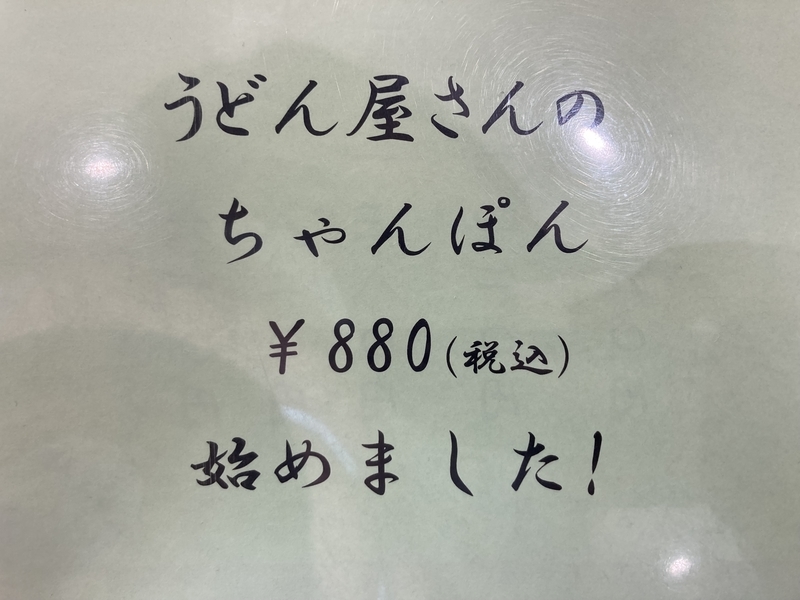 うどん屋さんの
ちゃんぽん
¥880(税込)
始めました!